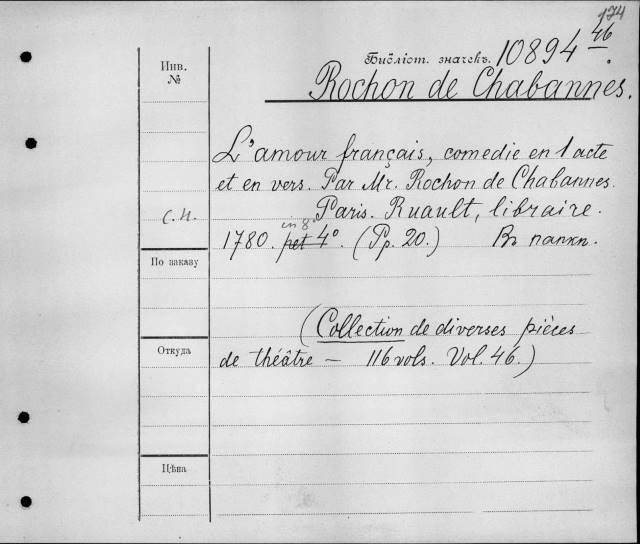 174
Библіот. значекъ. 10894 46.
Инв.
№
Rochon de Chabannes.
L'amour français, comedie en 1 acte
et en vers. Par Mr. Rochon de Chabannes.
С.Н. Paris. Ruault, libraire.
in 8°
1780. pet 4°. (Pp. 20.) Въ папкѣ.
По заказу
(Collection de diverses pièces
Откуда
de théâtre — 116 vols. Vol. 46.)
Цѣна